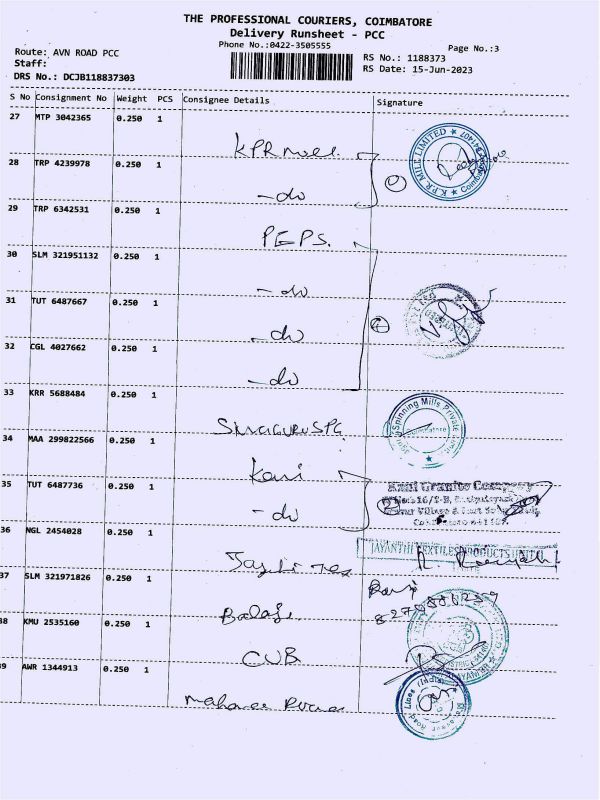 THE PROFESSIONAL COURIERS, COIMBATORE
Delivery Runsheet - PCC
Phone No.:0422-3505555
Page No.:3
Route: AVN ROAD PCC
RS No.: 1188373
Staff:
RS Date: 15-Jun-2023
DRS No.: DCJB118837303
S No Consignment No Weight PCS Consignee Details Signature
27 MTP 3042365 0.250 1
KPR mill
28 TRP 4239978 0.250 1
- do
29 TRP 6342531 0.250 1
PEPS.
30 SLM 321951132 0.250 1
- do
31 TUT 6487667 0.250 1
- do
32 CGL 4027662 0.250 1
- do
33 KRR 5688484 0.250 1
SIVAGURU SPG
34 MAA 299822566 0.250 1
Kani
35 TUT 6487736 0.250 1
- do
36 NGL 2454028 0.250 1
Jayanthi Tex
37 SLM 321971826 0.250 1
Balaji
38 KMU 2535160 0.250 1
CUB
39 AWR 1344913 0.250 1
K.P.R. MILL LIMITED
Spinning Mills Private Limited
Coimbatore
Kani Granite Company
JAYANTHI TEXTILES PRODUCTS
Ravi
Road Lines (India)